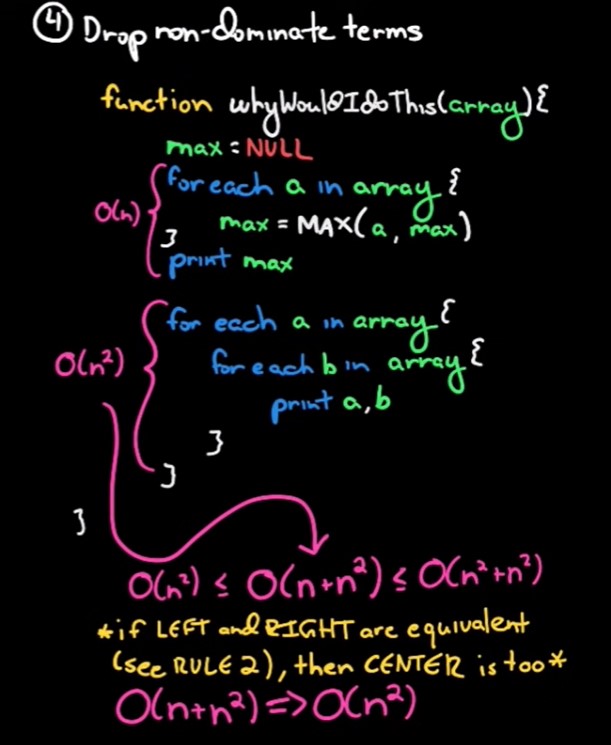 ④ Drop non-dominate terms
function whyWouldIdoThis(array){
max = NULL
for each a in array {
O(n)
max = MAX(a, max)
}
print max
for each a in array {
O(n²)
for each b in array {
print a,b
}
}
}
O(n²) ≤ O(n+n²) ≤ O(n²+n²)
*if LEFT and RIGHT are equivalent
(see RULE 2), then CENTER is too*
O(n+n²) => O(n²)